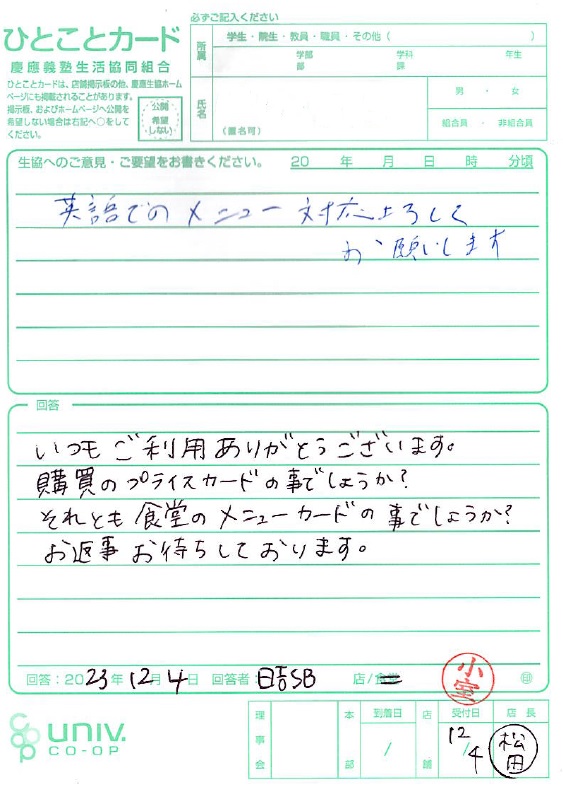 ひとことカード
慶應義塾生活協同組合
ひとことカードは、店舗掲示板の他、慶應生協ホーム
ページにも掲載されることがあります。
掲示板、およびホームページへ公開を
希望しない場合は右記へ○をして
ください。
公開
希望
しない
必ずご記入ください
所属
学生・院生・教員・職員・その他（ ）
学部 学科 年生
部 課
氏名
（匿名可）
男 ・ 女
組合員 ・ 非組合員
生協へのご意見・ご要望をお書きください。 20 年 月 日 時 分頃
英語でのメニュー対応よろしく
お願いします
回答
いつもご利用ありがとうございます。
購買のプライスカードの事でしょうか?
それとも食堂のメニューカードの事でしょうか?
お返事お待ちしております。
回答：2023年12月4日 回答者：日吉SB 店/食堂 小室 印
univ.
CO-OP
理事会 本部 到着日 / 店舗 受付日 12/4 店長 松田